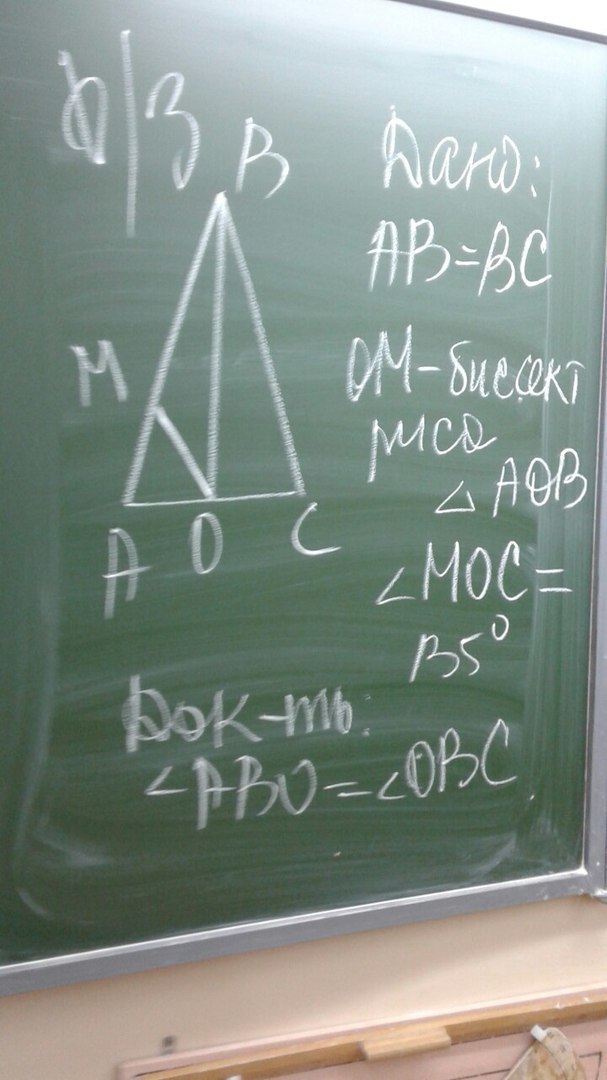 Д/З
B
M
A
O
C
Дано:
AB=BC
OM-биссект
риса
△AOB
∠MOC=
135°
Док-ть:
∠ABO=∠OBC